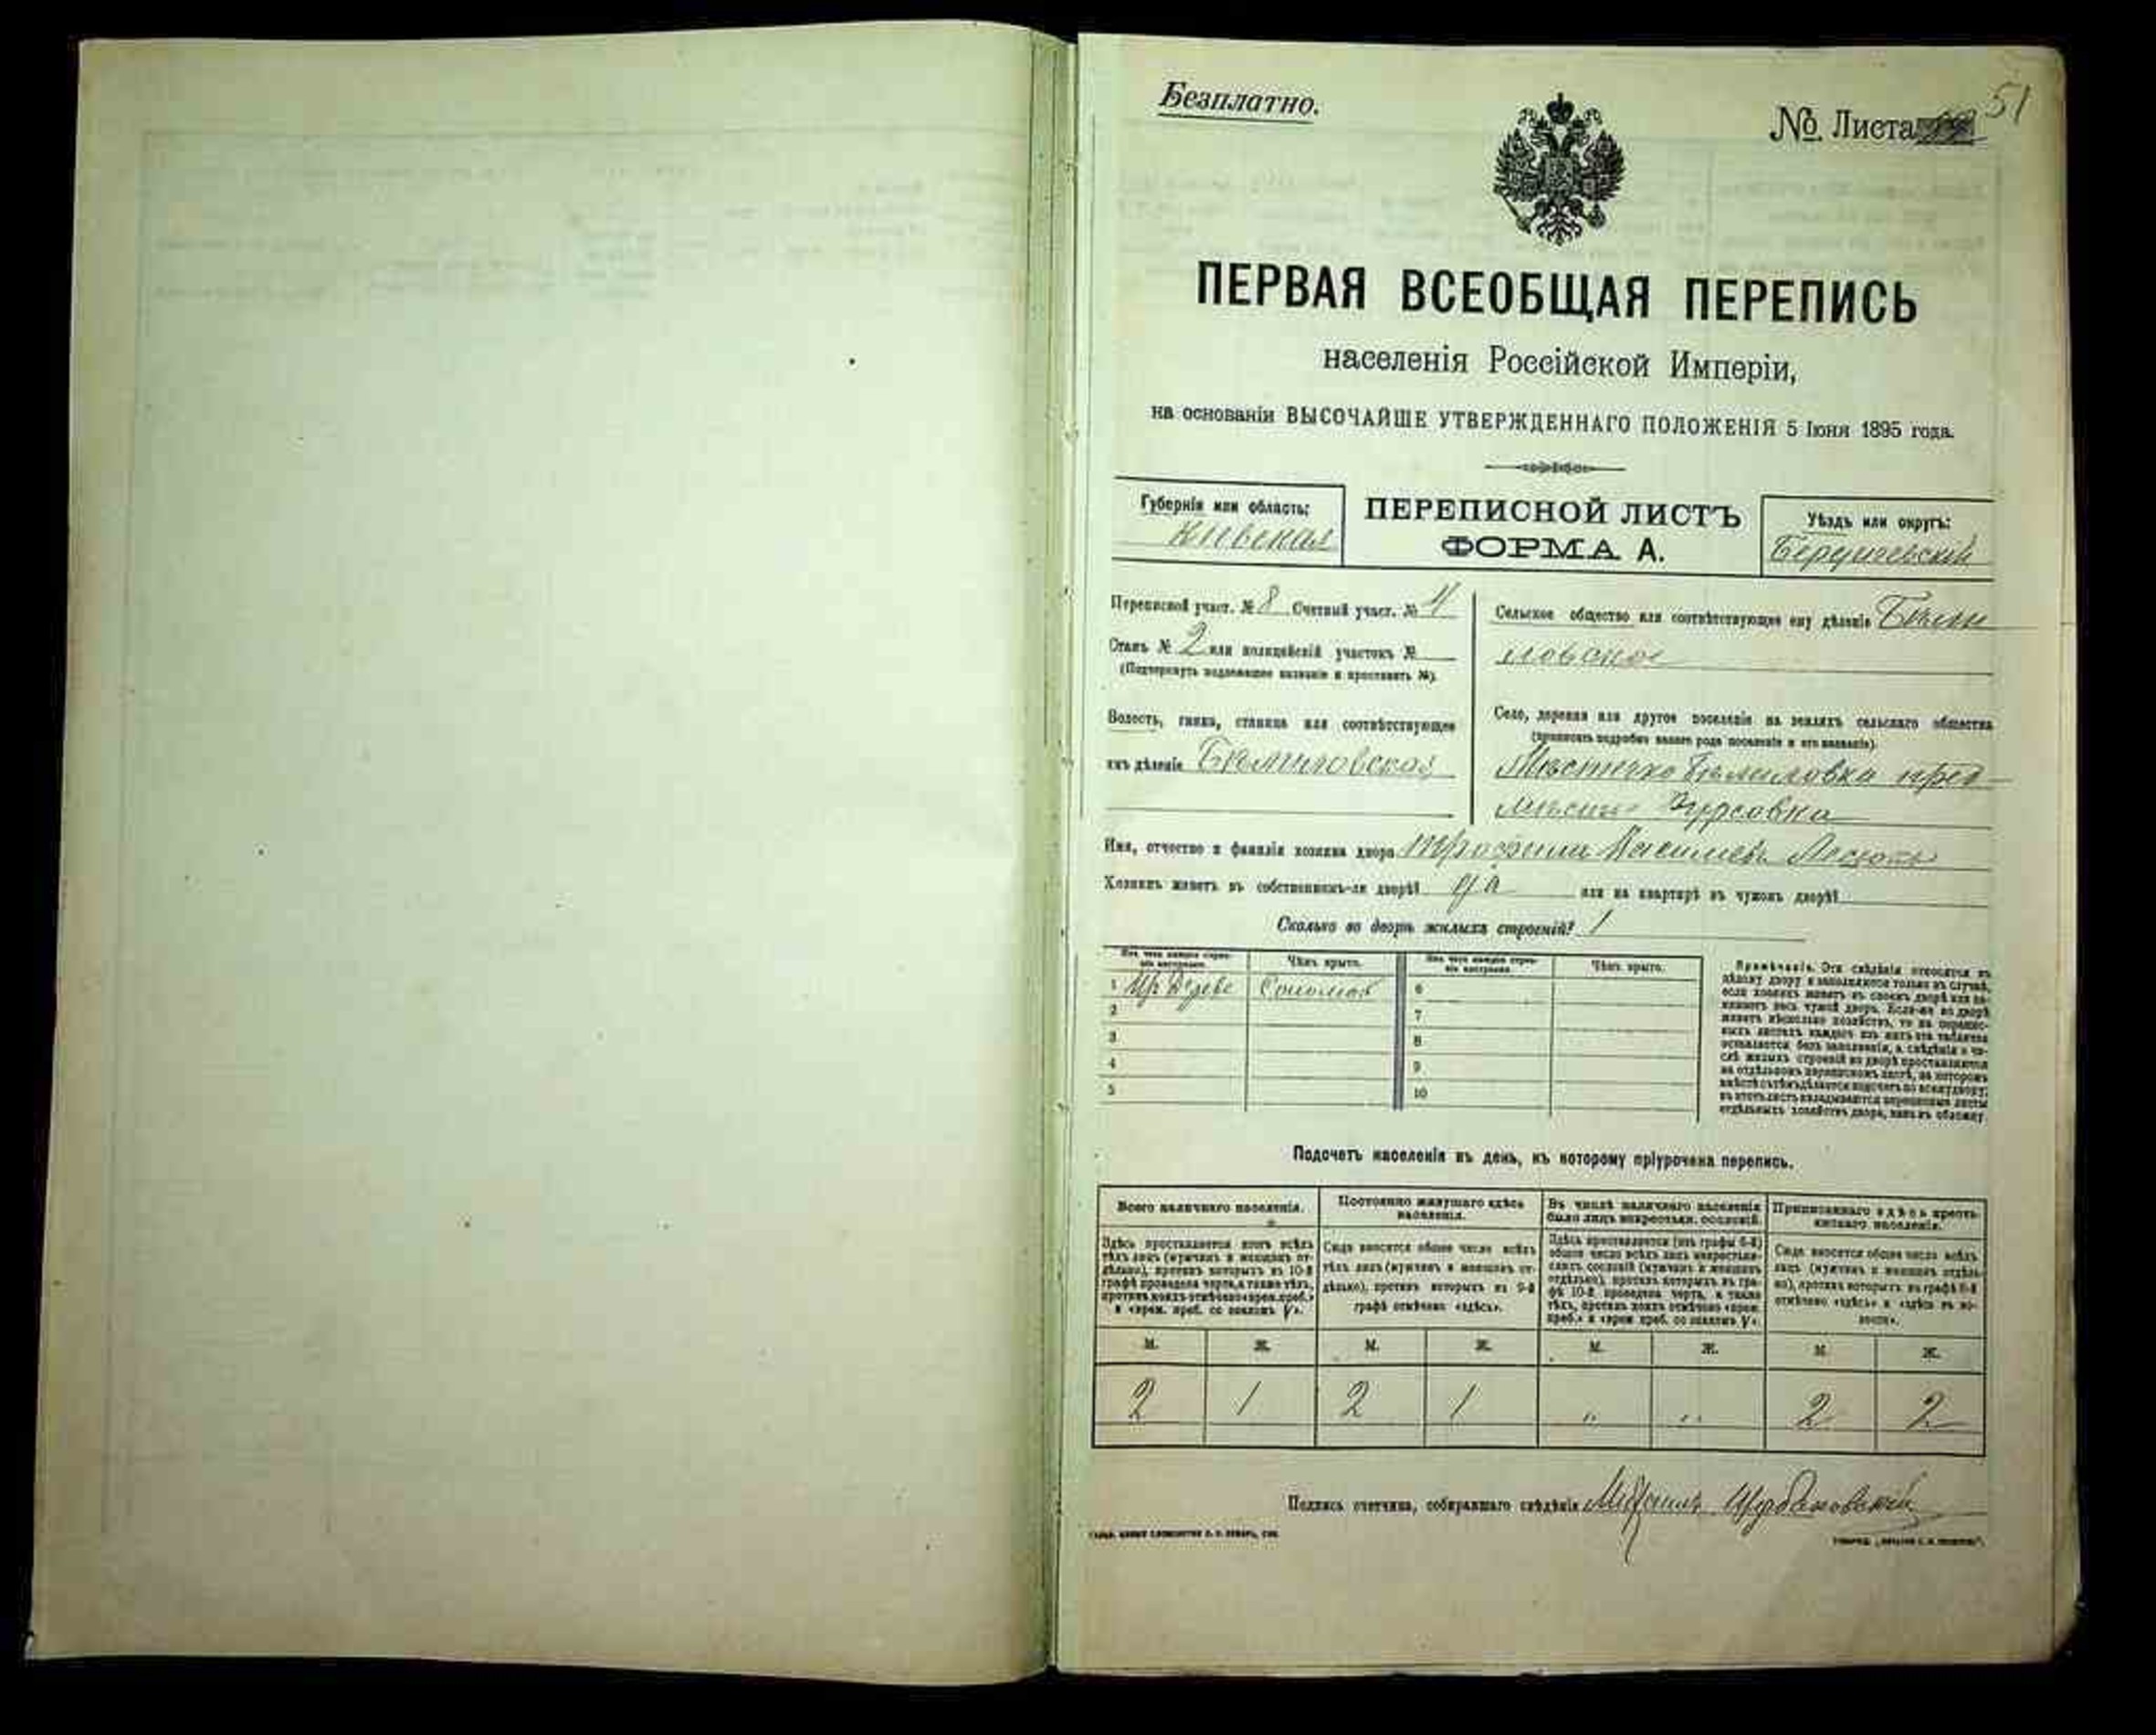 Безплатно.
№ Листа
51
ПЕРВАЯ ВСЕОБЩАЯ ПЕРЕПИСЬ
населенія Россійской Имперіи,
на основаніи ВЫСОЧАЙШЕ УТВЕРЖДЕННАГО ПОЛОЖЕНІЯ 5 Іюня 1895 года.
Губернія или область:
Кіевская
ПЕРЕПИСНОЙ ЛИСТЪ
ФОРМА А.
Уѣздъ или округъ:
Бердичевскій
Переписной участ. № 8 Счетный участ. № 4
Станъ № 2 или полицейскій участокъ №
(Подчеркнуть надлежащее названіе и проставить №).
Волость, гмина, станица или соотвѣтствующее
имъ дѣленіе Бѣлиловская
Сельское общество или соотвѣтствующее ему дѣленіе Бѣли
ловское
Село, деревня или другое поселеніе на земляхъ сельскаго общества
(прописать подробно какого рода поселеніе и его названіе).
Мѣстечко Бѣлиловка пред-
мѣстье
Имя, отчество и фамилія хозяина двора Трофимъ Васильевъ
Хозяинъ живетъ въ собственномъ-ли дворѣ? да или на квартирѣ въ чужомъ дворѣ?
Сколько во дворѣ жилыхъ строеній? 1
Изъ чего каждое строеніе построено.
Чѣмъ крыто.
Изъ чего каждое строеніе построено.
Чѣмъ крыто.
1 Соломой 6
2 7
3 8
4 9
5 10
Примѣчаніе. Эти свѣдѣнія относятся къ
цѣлому двору и заполняются только въ случаѣ,
если хозяинъ живетъ въ своемъ дворѣ или за-
нимаетъ весь чужой дворъ. Если-же во дворѣ
живетъ нѣсколько хозяйствъ, то на перепис-
ныхъ листахъ каждаго изъ нихъ эта табличка
оставляется безъ заполненія, а свѣдѣнія о чи-
слѣ жилыхъ строеній во дворѣ проставляются
на отдѣльномъ переписномъ листѣ, на которомъ
вмѣстѣ съ тѣмъ дѣлается подсчетъ по всему двору;
въ этотъ листъ вкладываются переписные листы
отдѣльныхъ хозяйствъ двора, какъ въ обложку.
Подсчетъ населенія въ день, къ которому пріурочена перепись.
Всего наличнаго населенія.
Постоянно живущаго здѣсь
населенія.
Въ числѣ наличнаго населенія
было лицъ некрестьян. сословій.
Приписаннаго здѣсь кресть-
янскаго населенія.
Здѣсь проставляется итогъ всѣхъ
тѣхъ лицъ (мужчинъ и женщинъ от-
дѣльно), противъ которыхъ въ 10-й
графѣ проведена черта, а также тѣхъ,
противъ коихъ отмѣчено «врем. преб.»
и «врем. преб. со знакомъ V».
Сюда вносится общее число всѣхъ
тѣхъ лицъ (мужчинъ и женщинъ от-
дѣльно), противъ которыхъ въ 9-й
графѣ отмѣчено «здѣсь».
Здѣсь проставляется (изъ графы 6-й)
общее число всѣхъ лицъ некрестьян-
скихъ сословій (мужчинъ и женщинъ
отдѣльно), противъ которыхъ въ гра-
фѣ 10-й проведена черта, а также
тѣхъ, противъ коихъ отмѣчено «врем.
преб.» и «врем. преб. со знакомъ V».
Сюда вносится общее число всѣхъ
лицъ (мужчинъ и женщинъ отдѣль-
но), противъ которыхъ въ графѣ 8-й
отмѣчено «здѣсь» и «здѣсь въ во-
лости».
М. Ж. М. Ж. М. Ж. М. Ж.
2 1 2 1 " " 2 2
Подпись счетчика, собиравшаго свѣдѣнія